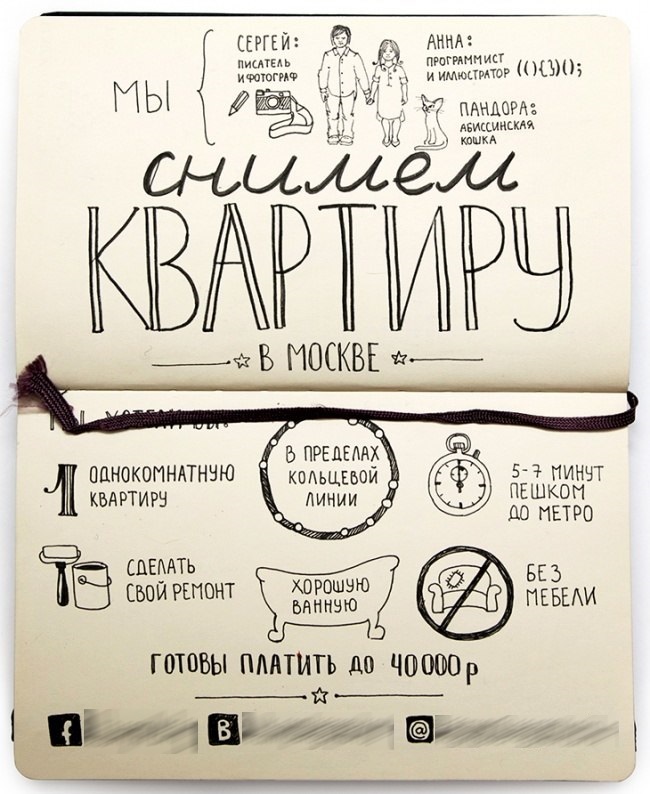 МЫ
СЕРГЕЙ:
ПИСАТЕЛЬ
И ФОТОГРАФ
АННА:
ПРОГРАММИСТ
И ИЛЛЮСТРАТОР ((){3})();
ПАНДОРА:
АБИССИНСКАЯ
КОШКА
СНИМЕМ
КВАРТИРУ
В МОСКВЕ
1 ОДНОКОМНАТНУЮ
КВАРТИРУ
В ПРЕДЕЛАХ
КОЛЬЦЕВОЙ
ЛИНИИ
5-7 МИНУТ
ПЕШКОМ
ДО МЕТРО
СДЕЛАТЬ
СВОЙ РЕМОНТ
ХОРОШУЮ
ВАННУЮ
БЕЗ
МЕБЕЛИ
ГОТОВЫ ПЛАТИТЬ ДО 40000р
f
В
@